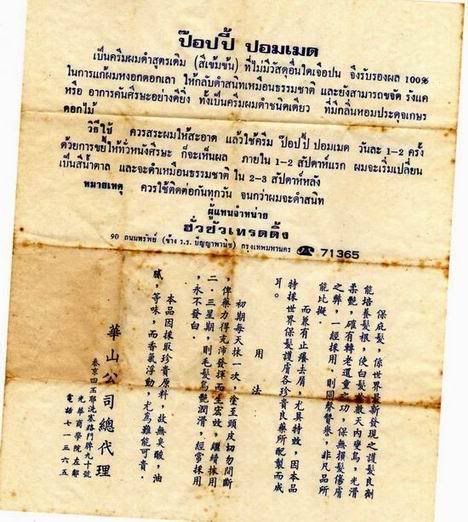 ป๊อปปี้ ปอมเมด
เป็นครีมผมดำสูตรเดิม (สีเข้มข้น) ที่ไม่มีวัสดุอื่นใดเจือปน จึงรับรองผล 100%
ในการแก้ผมหงอกดอกเลา ให้กลับดำสนิทเหมือนธรรมชาติ และยังสามารถขจัด รังแค
หรือ อาการคันศีรษะอย่างดียิ่ง ทั้งเป็นครีมผมดำชนิดเดียว ที่มีกลิ่นหอมประดุจเกษร
ดอกไม้
วิธีใช้ ควรสระผมให้สะอาด แล้วใช้ครีม ป๊อปปี้ ปอมเมด วันละ 1-2 ครั้ง
ด้วยการขยี้ให้ทั่วหนังศีรษะ ก็จะเห็นผล ภายใน 1-2 สัปดาห์แรก ผมจะเริ่มเปลี่ยน
เป็นสีน้ำตาล และจะดำเหมือนธรรมชาติ ใน 2-3 สัปดาห์หลัง
หมายเหตุ ควรใช้ติดต่อกันทุกวัน จนกว่าผมจะดำสนิท
ผู้แทนจำหน่าย
ฮั่วซัวเทรดดิ้ง
90 ถนนทรัพย์ (ข้าง ร.ร. ปัญญาพานิช) กรุงเทพมหานคร ☎ 71365
保庭髮,係世界最新發現之護髮良劑
能培養髮根,使白髮於數天內變烏,光滑
柔艷,確有轉老還童之功,保無損髮傷膚
之弊,一經採用,則同聲贊譽,非凡品所
能比擬。
而兼有止癢去屑,尤具特效,因本品
特採世界保髮護膚各珍貴良藥所配製而成
耳。
用法
初期每天抹一次,塗至頭皮切勿間斷
,俾藥力得充沛發揮而生宏效,繼續採用
二、三星期,則毛髮烏艷潤滑,經常採用
,永不發白。
本品因採取珍貴原料,故無臭酸,油
膩,等味,而香氣浮動,尤爲難能可貴。
華山公司總代理
泰京四丕耶洗塞路門牌九十號
光華商學院左鄰
電話七一三六五